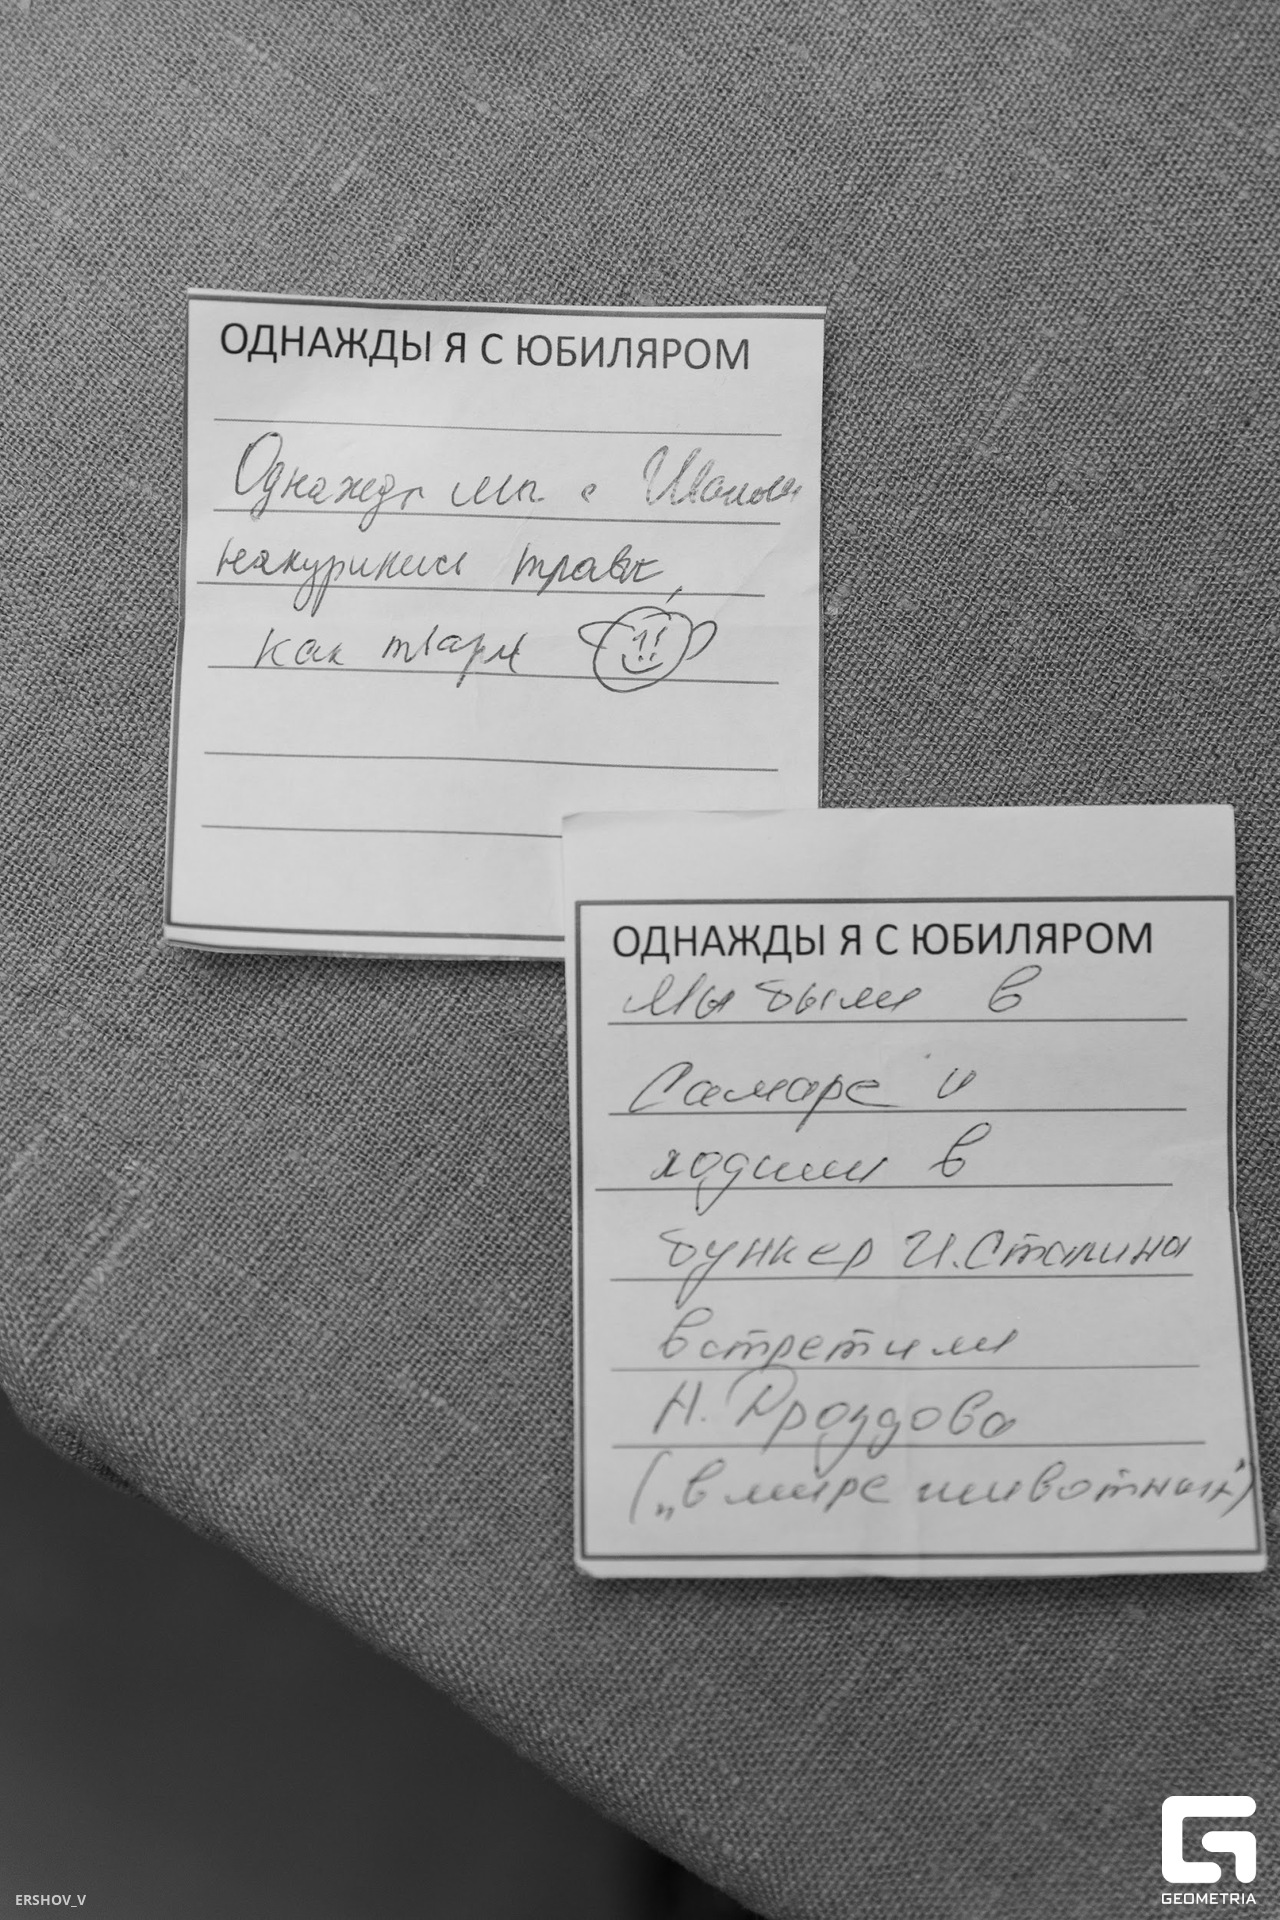 ОДНАЖДЫ Я С ЮБИЛЯРОМ
Однажды мы с
накурились травы,
как твари
ОДНАЖДЫ Я С ЮБИЛЯРОМ
Мы были в
Самаре и
ходили в
бункер И.Сталина
встретили
Н. Дроздова
(„в мире животных")
ERSHOV_V
GEOMETRIA